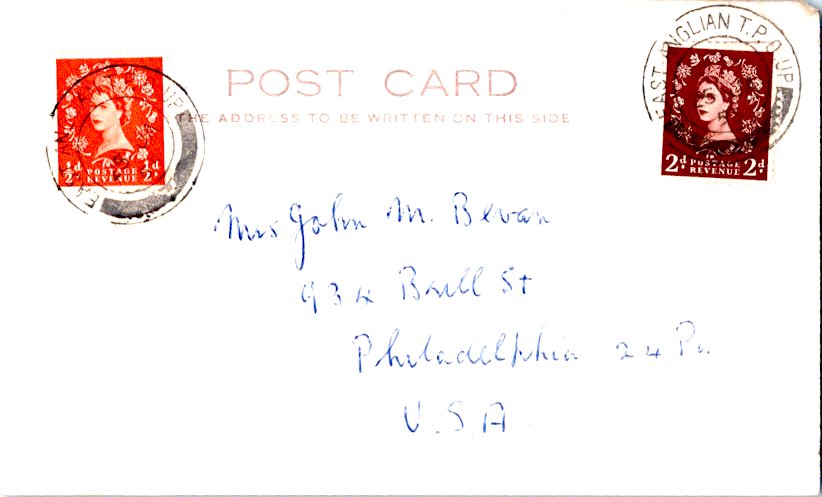 EAST ANGLIAN T.P.O. UP
POST CARD
THE ADDRESS TO BE WRITTEN ON THIS SIDE
½d POSTAGE REVENUE ½d
2d POSTAGE REVENUE 2d
Mrs John M. Bevan
934 Brill St
Philadelphia 24 Pa.
U.S.A.